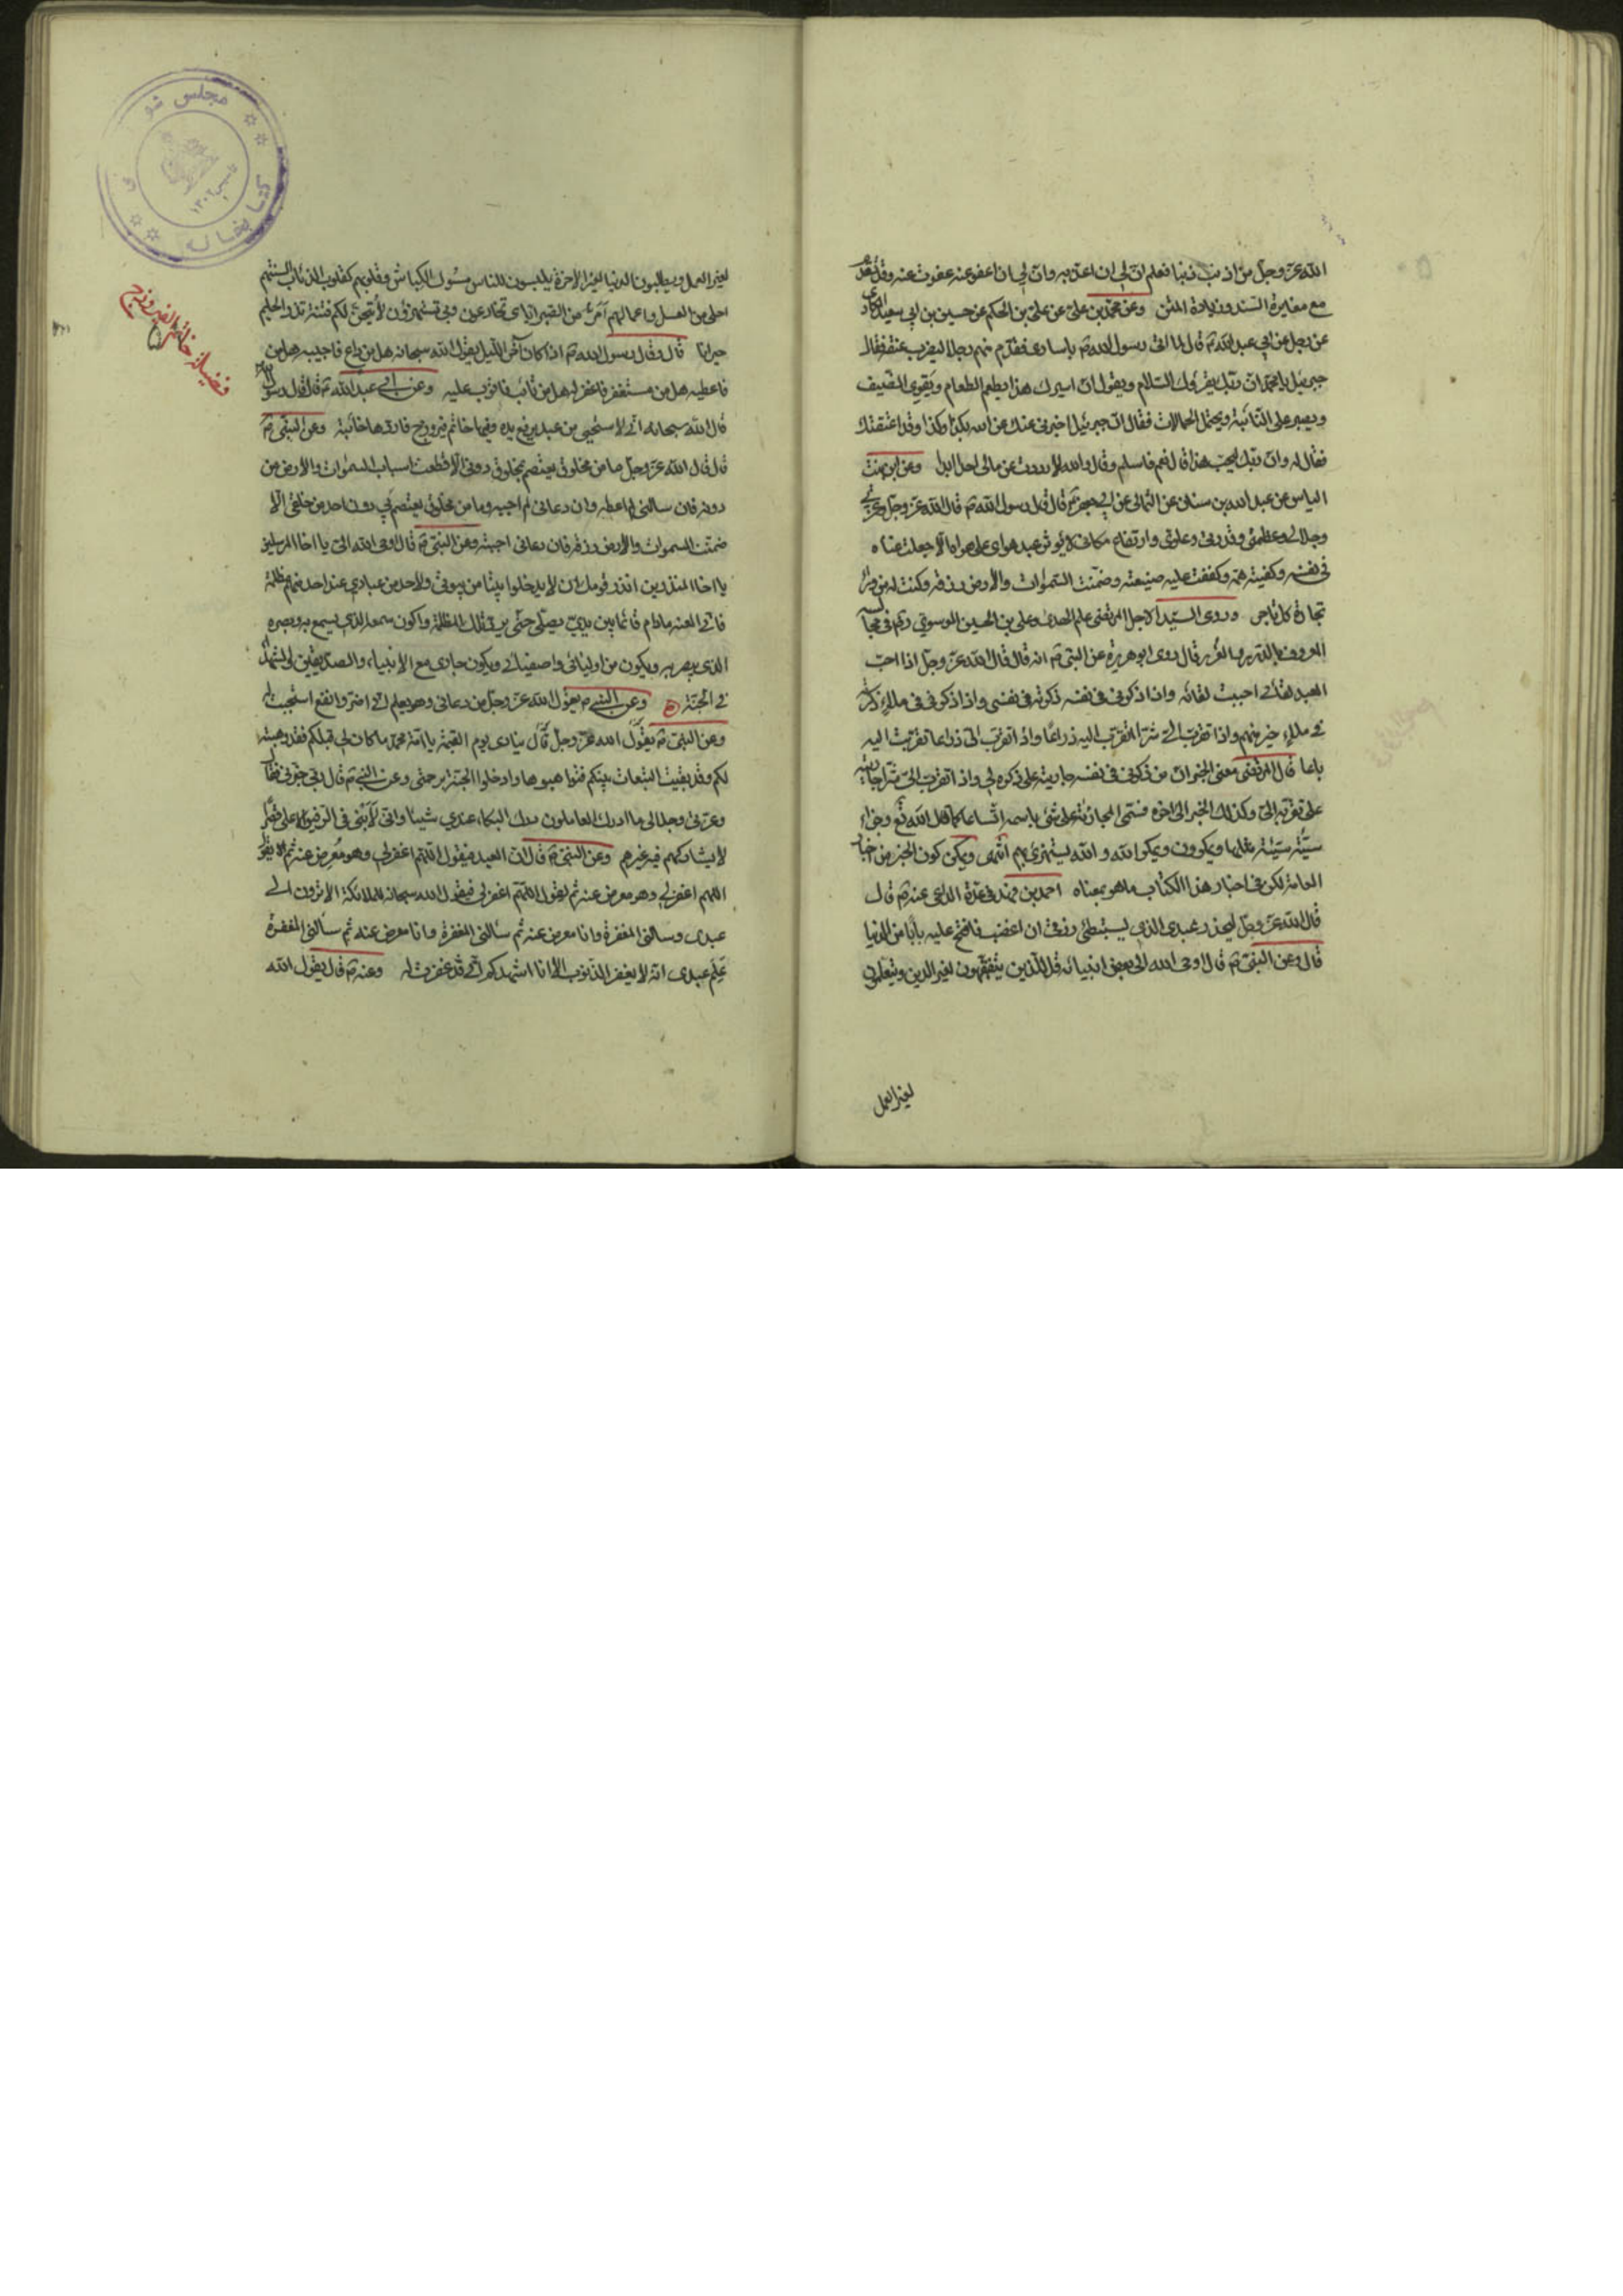 الله عز وجل من اذنب ذنبا فعلم ان لي ان اعذبه وان لي ان اعفو عنه عفوت عنه وقد تقدم
مع مغايرة السند وزيادة المتن وعن محمد بن علي عن علي بن الحكم عن حسين بن ابي سعيد المكاري
عن رجل عن ابي عبد الله قال لما اتى رسول الله باسارى فقدم منهم رجلا ليضرب عنقه فقال
جبرئيل يا محمد ان ربك يقرؤك السلام ويقول ان اسيرك هذا يطعم الطعام ويقوي الضيف
ويصبر على النائبة ويحتمل الحمالات فقال ان جبرئيل اخبرني عنك عن الله بكذا وكذا وقد اعتقتك
فقال له وان ربك ليحب هذا قال نعم فاسلم وقال والله لا رددت عن مالي احدا ابدا وعن ابن بنت
الياس عن عبد الله بن سنان عن الثمالي عن ابي جعفر قال قال رسول الله قال الله عز وجل وعزتي
وجلالي وعظمتي وقدرتي وعلوي وارتفاع مكاني لا يؤثر عبد هواي على هواه الا جعلت غناه
في نفسه وكفيته همه وكففت عليه ضيعته وضمنت السموات والارض رزقه وكنت له من وراء
تجارة كل تاجر وروى السيد الاجل المرتضى علم الهدى علي بن الحسين الموسوي في مجالسه
المعروف بالدرر والغرر قال روى ابو هريرة عن النبي انه قال قال الله عز وجل اذا احب
العبد لقائي احببت لقائه واذا ذكرني في نفسه ذكرته في نفسي واذا ذكرني في ملاء ذكرته
في ملاء خير منهم واذا تقرب الي شبرا تقربت اليه ذراعا واذا تقرب الي ذراعا تقربت اليه
باعا قال المرتضى معنى الخبر ان من ذكرني في نفسه جازيته على ذكره لي واذا تقرب الي شبرا جازيته
على تقربه الي وكذلك الخبر الى اخره فسمى المجازاة على شئ باسمه اتساعا كما قال الله تع وجزاء
سيئة سيئة مثلها ويمكرون ويمكر الله و الله يستهزئ بهم انتهى ويمكن كون الخبر من اخبار
العامة لكن في اخبار هذا الكتاب ما هو بمعناه احمد بن فهد في عدة الداعي عنه قال
قال الله عز وجل ليحذر عبدي الذي يستبطئ رزقي ان اغضب فافتح عليه بابا من الدنيا
قال وعن النبي قال اوحى الله الى بعض انبيائه قل للذين يتفقهون لغير الدين ويتعلمون
لغير العمل
لغير العمل ويطلبون الدنيا لغير الاخرة يلبسون للناس مسوك الكباش وقلوبهم كقلوب الذئاب السنتهم
احلى من العسل واعمالهم امر من الصبر اياي تخادعون وبي تستهزؤن لاتيحن لكم فتنة تذر الحليم
حيرانا قال وقال رسول الله اذا كان اخر الليل يقول الله سبحانه هل من داع فاجيبه هل من سائل
فاعطيه هل من مستغفر فاغفر له هل من تائب فاتوب عليه وعن ابي عبد الله قال قال رسول الله
قال الله سبحانه اني لاستحيي من عبد يرفع يده وفيها خاتم فيروزج فاردها خائبة وعن النبي
قال قال الله عز وجل ما من مخلوق يعتصم بمخلوق دوني الا قطعت اسباب السموات والارض من
دونه فان سالني لم اعطه وان دعاني لم اجبه وما من مخلوق يعتصم بي دون احد من خلقي الا
ضمنت السموات والارض رزقه فان دعاني اجبته وعن النبي قال اوحى الله الي يا اخا المرسلين
يا اخا المنذرين انذر قومك ان لا يدخلوا بيتا من بيوتي ولاحد من عبادي عند احد منهم مظلمة
فاني العنه ما دام قائما بين يدي يصلي حتى يرد تلك المظلمة واكون سمعه الذي يسمع به وبصره
الذي يبصر به ويكون من اوليائي واصفيائي ويكون جاري مع الانبياء والصديقين والشهداء
في الجنة وعن النبي يقول الله عز وجل من دعاني وهو يعلم اني اضر وانفع استجبت له
وعن النبي يقول الله عز وجل قال ينادي يوم القيمة يا امة محمد ما كان لي قبلكم فقد وهبته
لكم وقد بقيت التبعات بينكم فتواهبوها وادخلوا الجنة برحمتي وعن النبي قال ربي خبرني فقال
وعزتي وجلالي ما ادرك العاملون درك البكاء عندي شيئا واني لابني في الرفيق الاعلى قصرا
لا يشاركهم فيه غيرهم وعن النبي قال ان العبد ليقول اللهم اغفر لي وهو معرض عنه ثم يقول
اللهم اغفر لي وهو معرض عنه ثم يقول اللهم اغفر لي فيقول الله سبحانه للملائكة الا ترون الى
عبدي وسالني المغفرة وانا معرض عنه ثم سالني المغفرة وانا معرض عنه ثم سالني المغفرة
علم عبدي انه لا يغفر الذنوب الا انا اشهدكم اني قد غفرت له وعنه قال يقول الله
فضيلة خاتم الفيروزج
كتابخانه مجلس
تاسيس ١٣٠٢